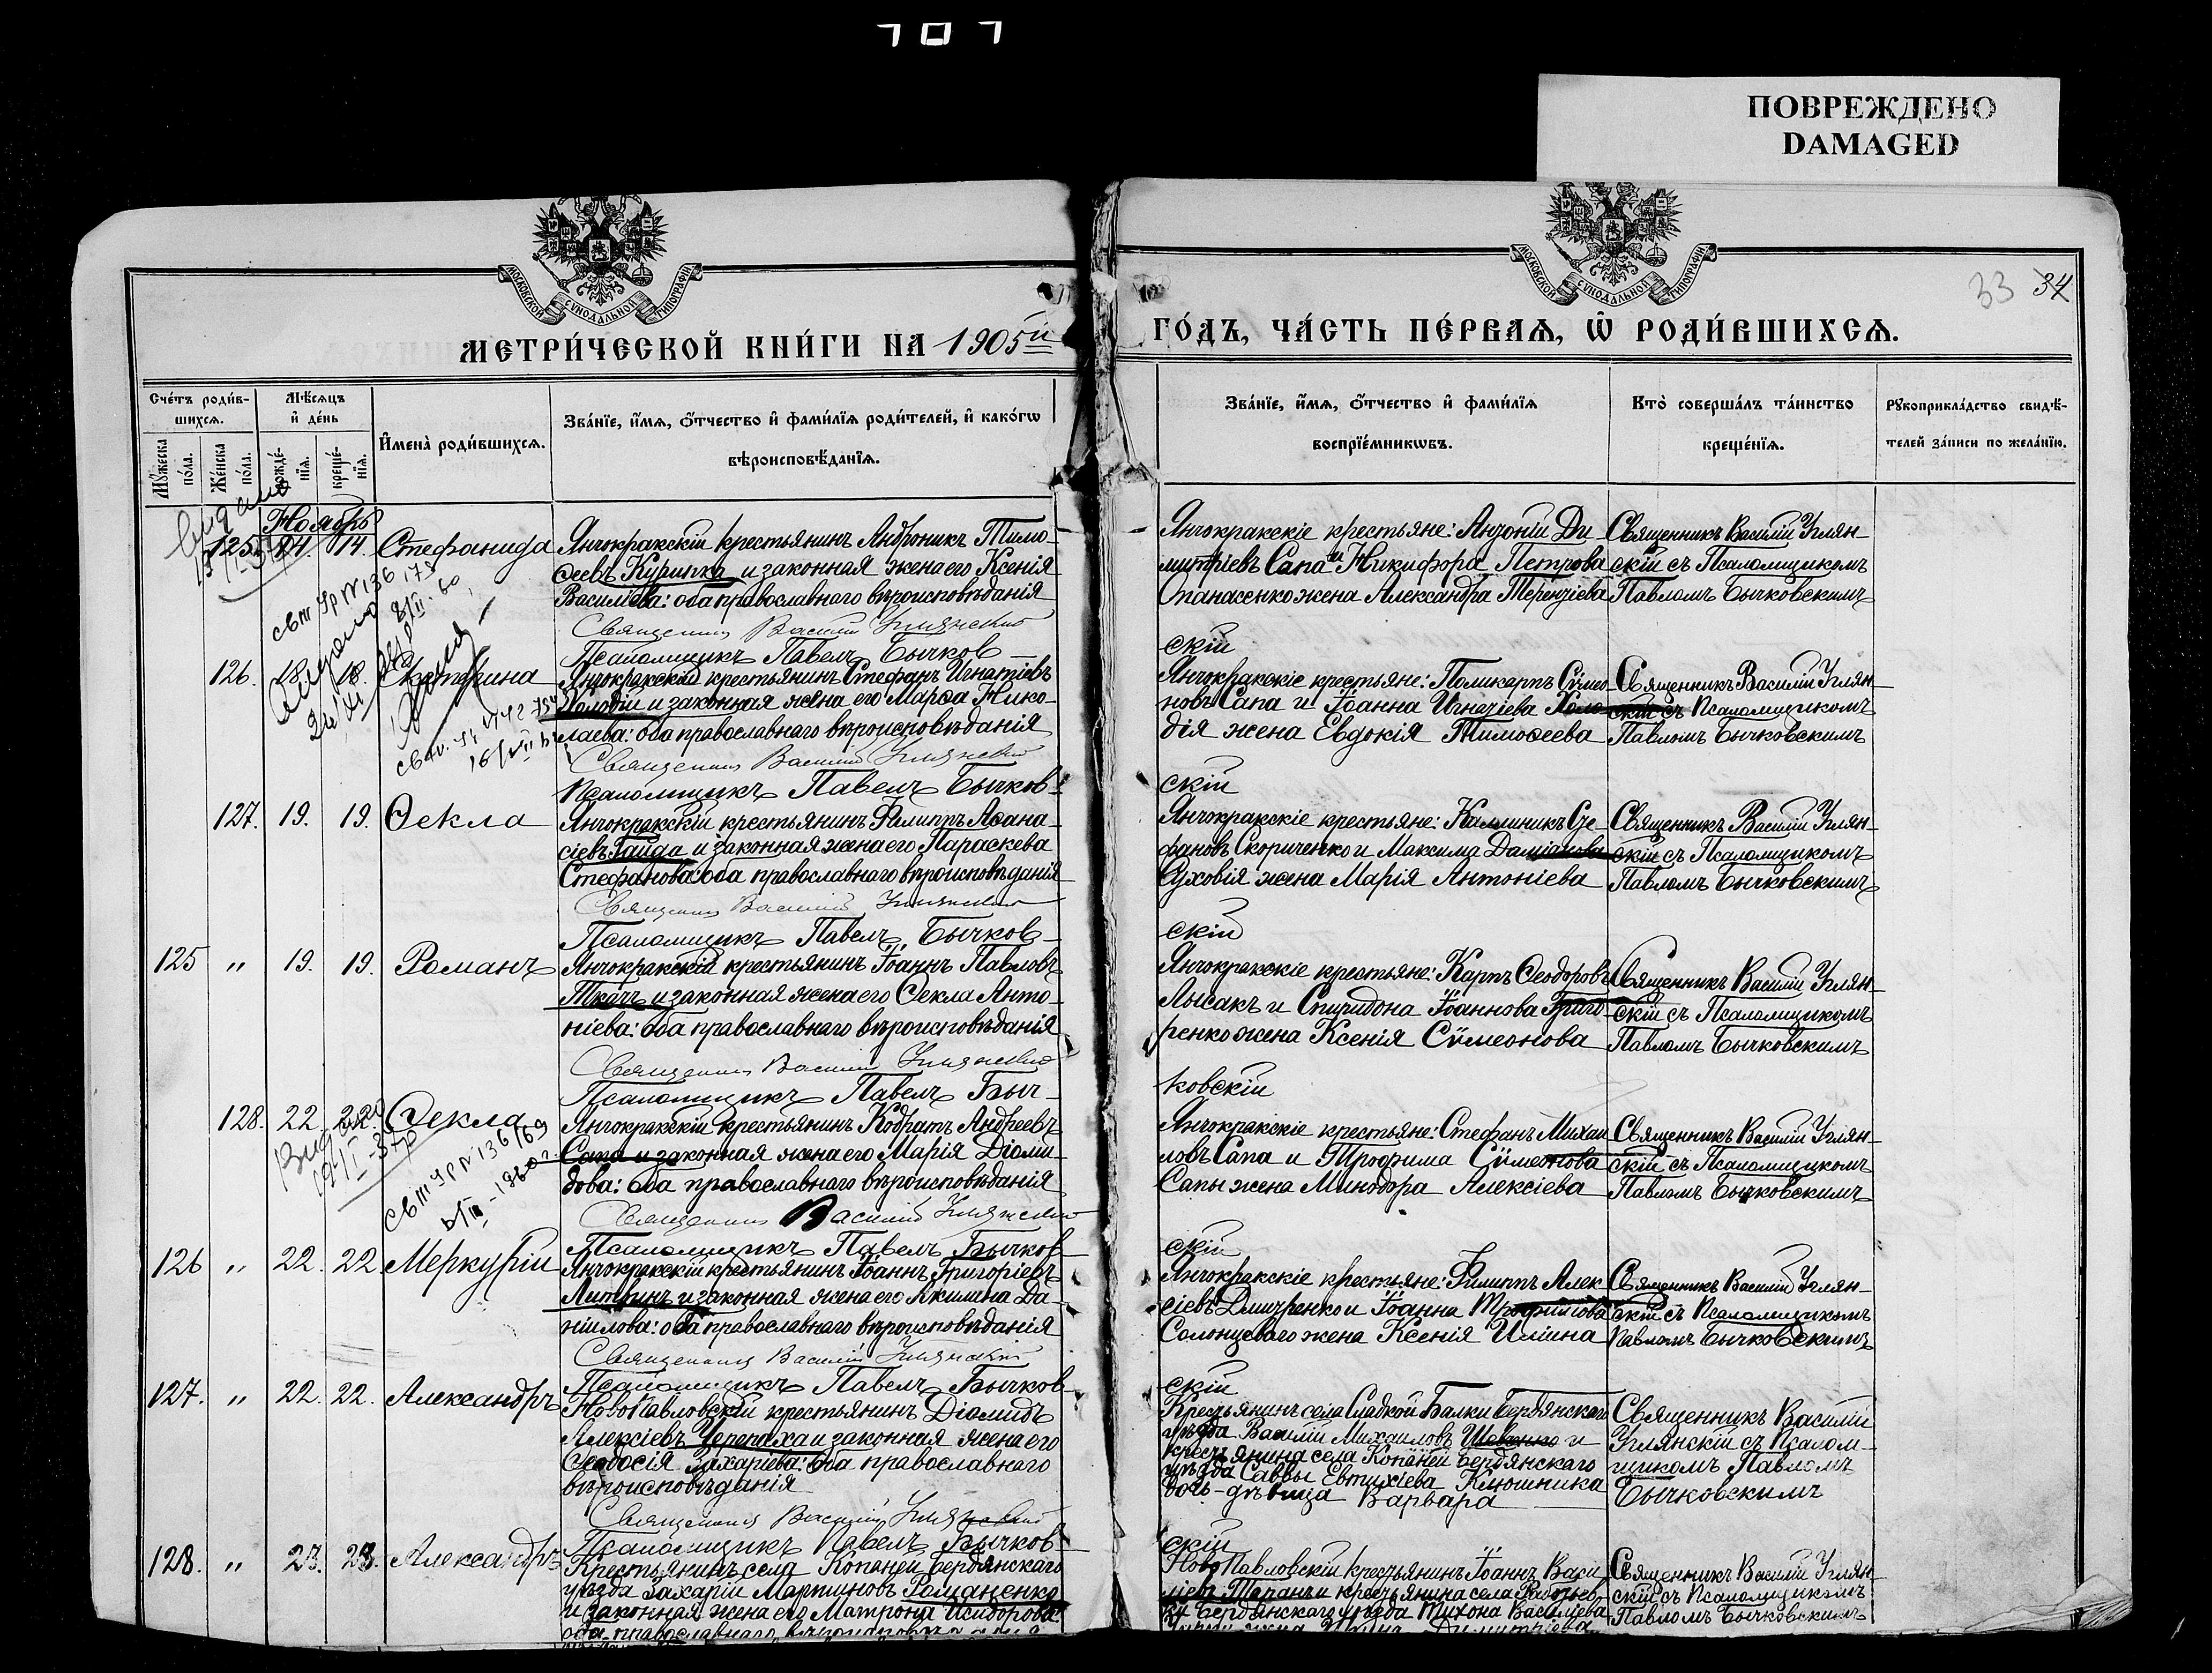 707
ПОВРЕЖДЕНО
DAMAGED
МОСКОВСКОЙ СѴНОДАЛЬНОЙ ТИПОГРАФІИ
МОСКОВСКОЙ СѴНОДАЛЬНОЙ ТИПОГРАФІИ
33 34
МЕТРИ́ЧЕСКОЙ КНИ́ГИ НА 1905й
ГО́ДЪ, ЧА́СТЬ ПЕ́РВАѦ, Ѡ҆ РОДИ́ВШИХСѦ.
Сче́тъ роди́в-
шихсѧ.
Мꙋ́жеска по́ла.
Же́нска по́ла.
Мѣ́сѧцъ
и҆ де́нь
рожде́-нїѧ.
креще́-нїѧ.
И҆мена̀ роди́вшихсѧ.
Зва́нїе, и҆́мѧ, ѻ҆́тчество и҆ фами́лїѧ роди́телей, и҆ како́гѡ
вѣроисповѣ́данїѧ.
Зва́нїе, и҆́мѧ, ѻ҆́тчество и҆ фами́лїѧ
воспрїе́мникѡвъ.
Кто̀ соверша́лъ та́инство
креще́нїѧ.
Рꙋкоприкла́дство свидѣ́-
телей за́писи по жела́нїю.
Ноябрь
125 14 14. Стефанида
Янчокракскій крестьянинъ Андроникъ Тимо-
ѳеевъ Курипка и законная жена его Ксенія
Васильева: оба православнаго вѣроисповѣданія
Священникъ Василій Углянскій
Псаломщикъ Павелъ Бычков-
Янчокракскіе крестьяне: Антоній Ди
митріевъ Сапа и Никифора Петрова
Опанасенко жена Александра Терентіева
скій
Священникъ Василій Углян-
скій съ Псаломщикомъ
Павломъ Бычковскимъ
126. 18. 18. Екатерина
Янчокракскій крестьянинъ Стефанъ Игнатіевъ
Холодій и законная жена его Марѳа Нико-
лаева: оба православнаго вѣроисповѣданія
Священникъ Василій Углянскій
Псаломщикъ Павелъ Бычков-
Янчокракскіе крестьяне: Поликарпъ Сѵмео-
новъ Сапа и Іоанна Игнатіева Холо
дія жена Евдокія Тимоѳеева
скій
Священникъ Василій Углян-
скій съ Псаломщикомъ
Павломъ Бычковскимъ
127. 19. 19. Ѳекла
Янчокракскій крестьянинъ Филиппъ Аѳана-
сіевъ Гайда и законная жена его Параскева
Стефанова: оба православнаго вѣроисповѣданія
Священникъ Василій Углянскій
Псаломщикъ Павелъ Бычков-
Янчокракскіе крестьяне: Калиникъ Сте-
фановъ Скориченко и Максима Даміанова
Суховія жена Марія Антоніева
скій
Священникъ Василій Углян-
скій съ Псаломщикомъ
Павломъ Бычковскимъ
125 " 19. 19. Романъ
Янчокракскій крестьянинъ Іоаннъ Павловъ
Ткачъ и законная жена его Ѳекла Анто-
ніева: оба православнаго вѣроисповѣданія
Священникъ Василій Углянскій
Псаломщикъ Павелъ Быч-
Янчокракскіе крестьяне: Карпъ Ѳеодоровъ
Лысакъ и Спиридона Іоаннова Григо
ренко жена Ксенія Сѵмеонова
ковскій
Священникъ Василій Углян-
скій съ Псаломщикомъ
Павломъ Бычковскимъ
128. 22. 22. Ѳекла
Янчокракскій крестьянинъ Кодратъ Андреевъ
Сапа и законная жена его Марія Діоми-
дова: оба православнаго вѣроисповѣданія
Священникъ Василій Углянскій
Псаломщикъ Павелъ Бычков-
Янчокракскіе крестьяне: Стефанъ Михаи
ловъ Сапа и Трофима Сѵмеонова
Сапы жена Минодора Алексіева
скій
Священникъ Василій Углян-
скій съ Псаломщикомъ
Павломъ Бычковскимъ
126 " 22. 22. Меркурій
Янчокракскій крестьянинъ Іоаннъ Григоріевъ
Литвинъ и законная жена его Акилина Да-
ніилова: оба православнаго вѣроисповѣданія
Священникъ Василій Углянскій
Псаломщикъ Павелъ Бычков-
Янчокракскіе крестьяне: Филиппъ Алек
сіевъ Дмитренко и Іоанна Трофимова
Солонцеваго жена Ксенія Иліина
скій
Священникъ Василій Углян-
скій съ Псаломщикомъ
Павломъ Бычковскимъ
127. " 22. 22. Александръ
Новопавловскій крестьянинъ Діомидъ
Алексіевъ Черепаха и законная жена его
Ѳеодосія Захаріева: оба православнаго
вѣроисповѣданія
Священникъ Василій Углянскій
Псаломщикъ Павелъ Бычков-
Крестьянинъ села Сладкой Балки Бердянскаго
уѣзда Василій Михаиловъ Шевченко и
крестьянина села Копаней Бердянскаго
уѣзда Саввы Евтихіева Клюшника
дочь-дѣвица Варвара
скій
Священникъ Василій
Углянскій съ Псалом-
щикомъ Павломъ
Бычковскимъ
128. " 23. 23. Александръ
Крестьянинъ села Копаней Бердянскаго
уѣзда Захарій Мартиновъ Романенко
и законная жена его Матрона Исидорова
оба православнаго вѣроисповѣданія
НовоПавловскій крестьянинъ Іоаннъ Васи
ліевъ Таранъ и крестьянина села
Бердянскаго уѣзда Тихона Василіева
жена Димитріева
Священникъ Василій Углян-
скій съ Псаломщикомъ
Павломъ Бычковскимъ